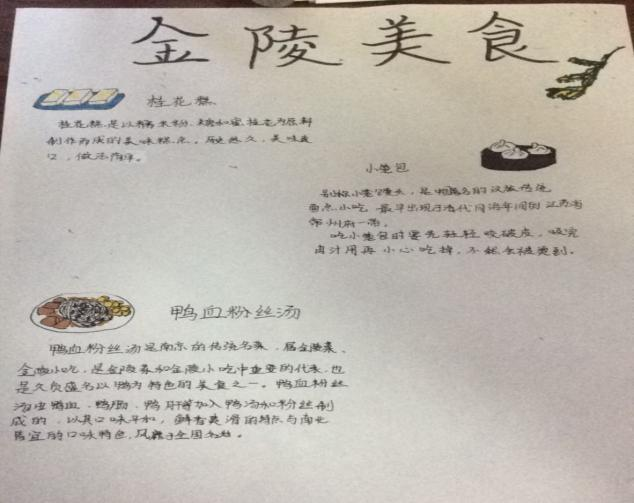 金陵美食
桂花糕
桂花糕是以糯米粉、糖和蜜桂花为原料
制作而成的美味糕点。历史悠久,美味爽
口,做法简单。
小笼包
别称小笼馒头,是中国著名的汉族传统
面点小吃 最早出现于清代同治年间的江苏省
常州府一带。
吃小笼包时要先轻轻咬破皮,吸完
卤汁用再小心吃掉,不然会被烫到。
鸭血粉丝汤
鸭血粉丝汤是南京的传统名菜,属金陵菜、
金陵小吃,是金陵菜和金陵小吃中重要的代表,也
是久负盛名以鸭为特色的美食之一。鸭血粉丝
汤由鸭血、鸭肠、鸭肝等加入鸭汤和粉丝制
成的,以其口味平和,鲜香爽滑的特点与南北
皆宜的口味特色,风靡于全国各地。